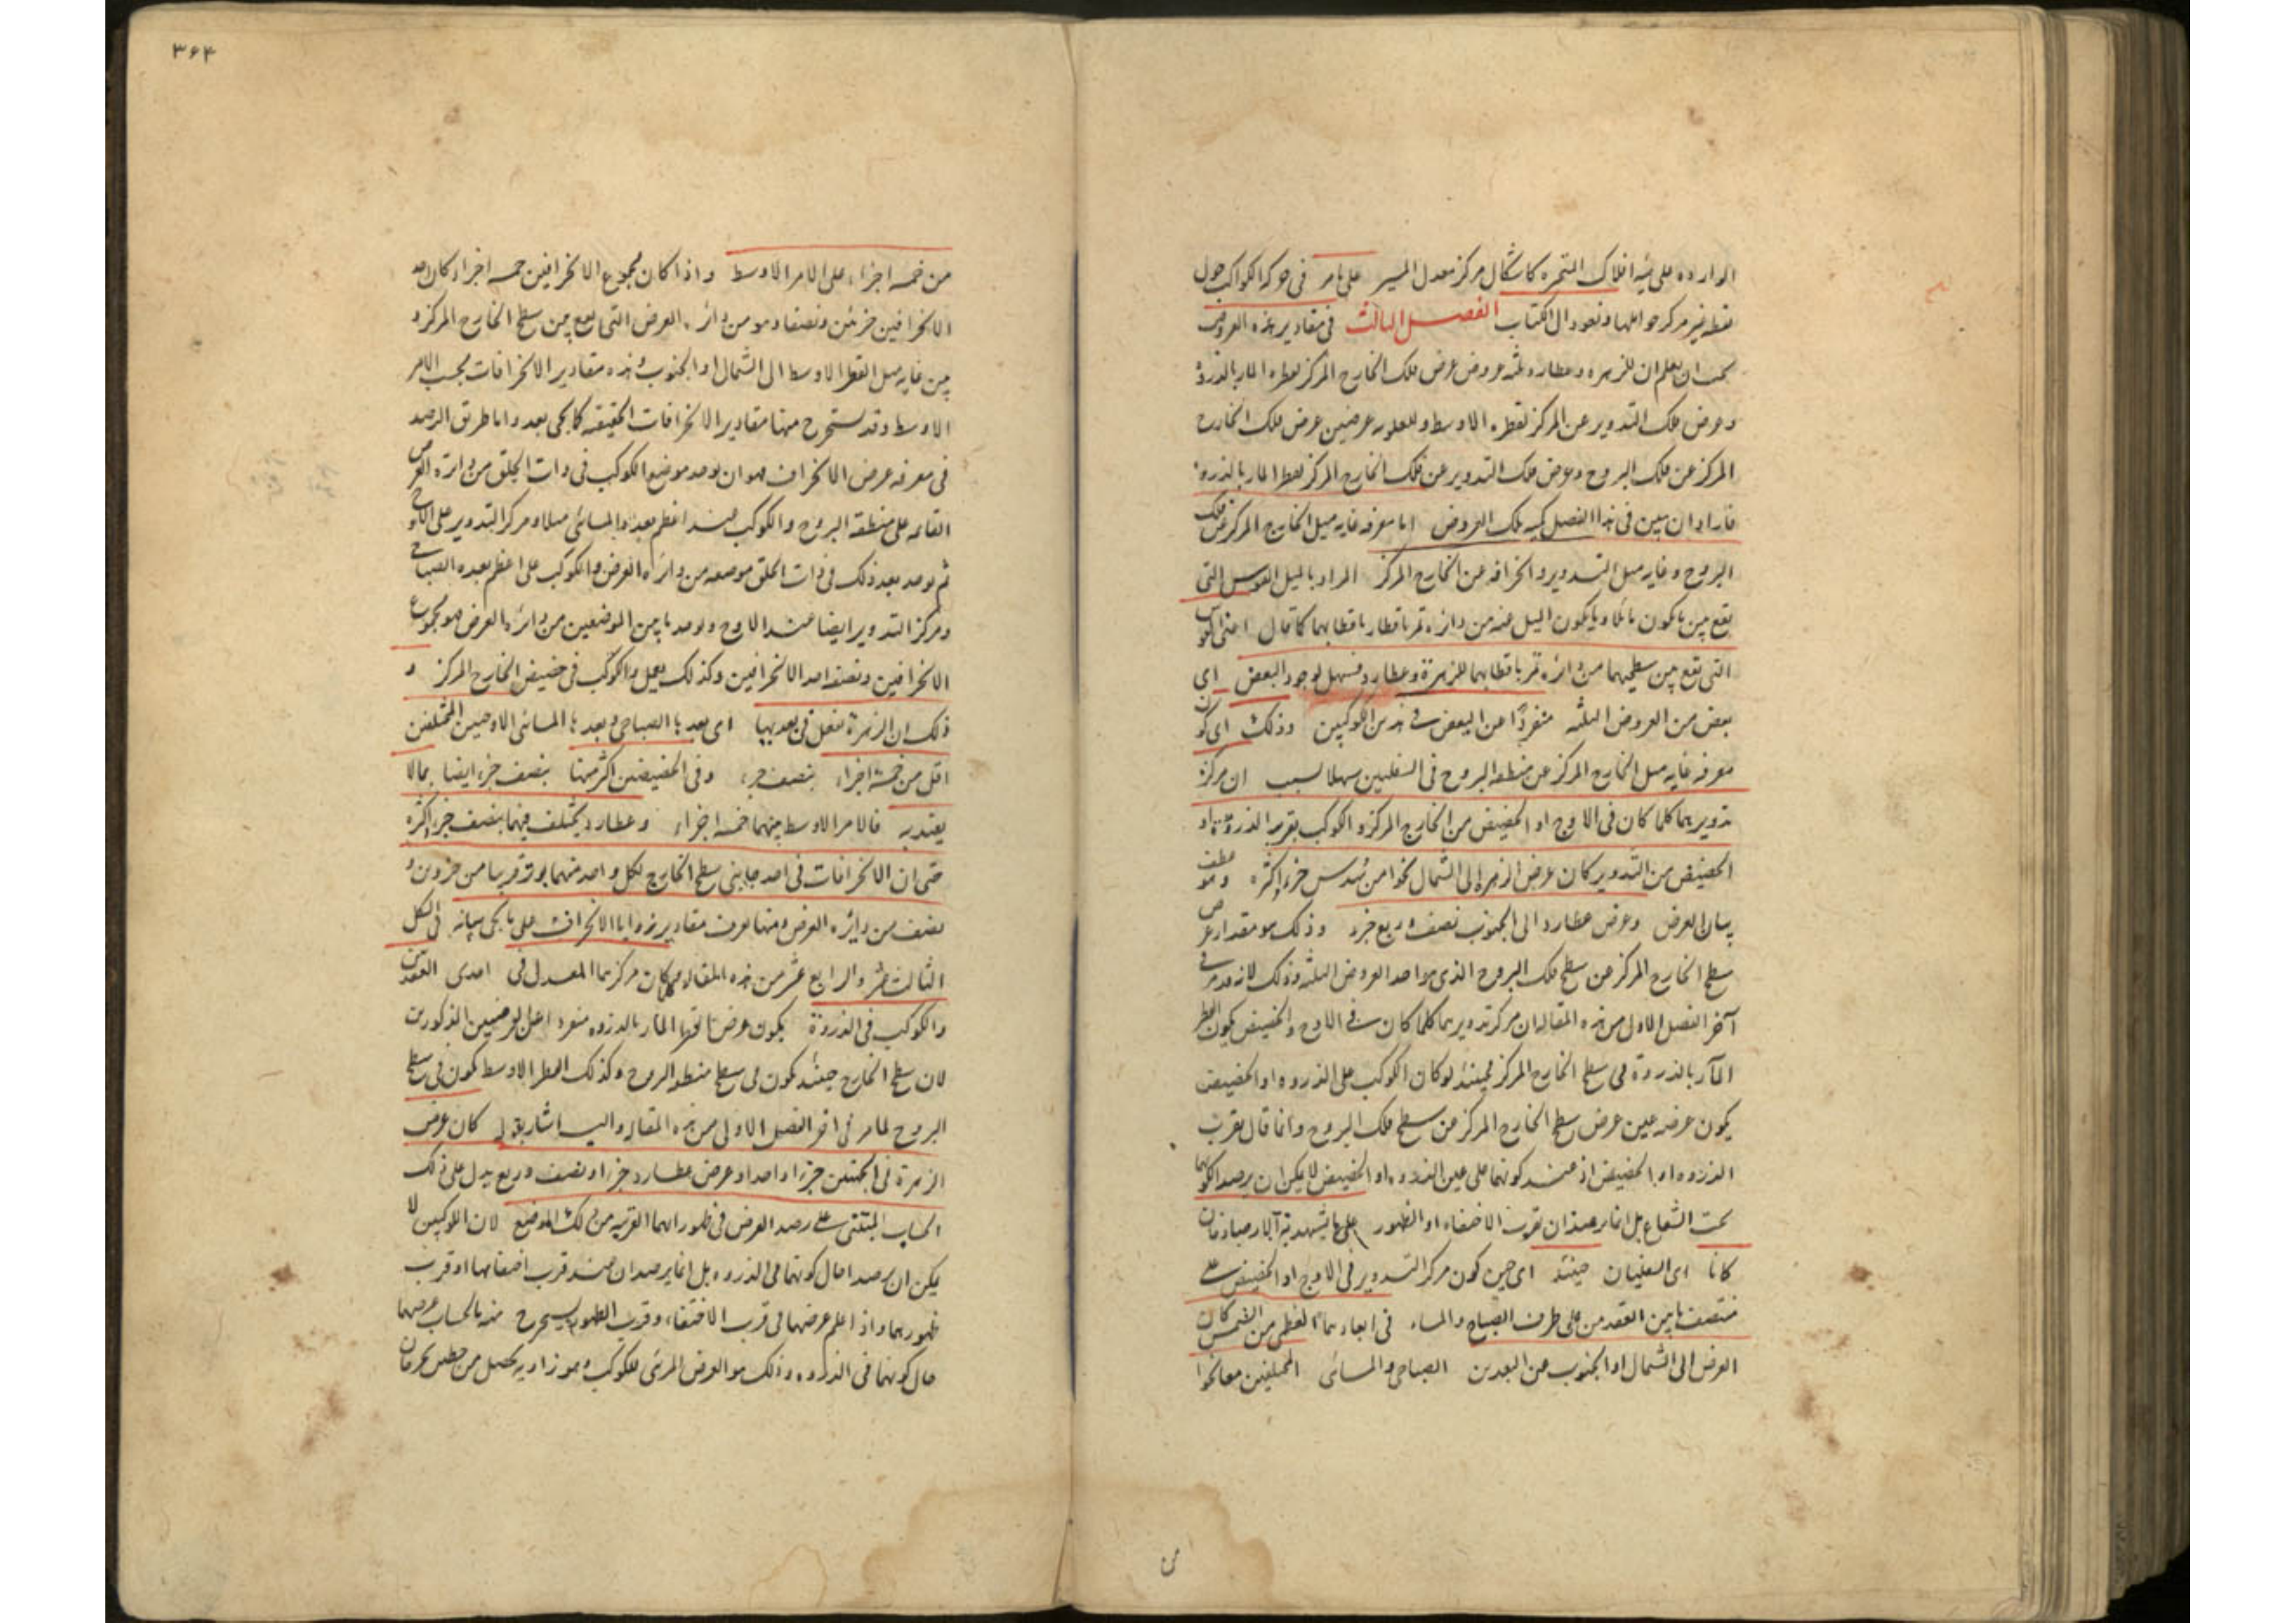 الواردة على هيئة افلاك المتحيرة كاشكال مركز معدل المسير على ما مر فى حركة الكواكب حول
نقطة غير مركز حواملها ونعود الى الكتاب الفصل الثالث فى مقادير هذه العروض
يجب ان يعلم ان للزهرة وعطارد ثلثة عروض عرض فلك الخارج المركز لقطره المار بالذروة
وعرض فلك التدوير عن المركز لقطره الاوسط وللعلوية عرضين عرض فلك الخارج
المركز عن فلك البروج وعرض فلك التدوير عن فلك الخارج المركز لقطر المار بالذروة
فاراد ان يبين فى هذا الفصل كمية تلك العروض اما معرفة غاية ميل الخارج المركز عن فلك
البروج وغاية ميل التدوير وانحرافه عن الخارج المركز المراد بالميل القوس التى
تقع بين ما يكون مائلا وما يكون الميل عنه من دائرة تمر باقطار باقطابهما كما قال اعنى القوس
التى تقع بين سطحيهما من دائرة تمر باقطابهما للزهرة وعطارد فسهل لوجود البعض اى
بعض من العروض الثلثة منفردًا عن البعض فى هذين الكوكبين وذلك اى كون
معرفة غاية ميل الخارج المركز عن منطقة البروج فى السفليين سهلا لسبب ان مركز
تدويريهما كلما كان فى الاوج او الحضيض من الخارج المركز والكوكب بقرب الذروة او
الحضيض من التدوير كان عرض الزهرة الى الشمال نحوا من سدس جزء اكثره وهو عطف
بيان العرض وعرض عطارد الى الجنوب نصف وربع جزء وذلك هو مقدار عرض
سطح الخارج المركز عن سطح فلك البروج الذى هو احد العروض الثلثة وذلك لانه قد مر فى
آخر الفصل الاول من هذه المقالة ان مركز تدويريهما كلما كان فى الاوج والحضيض يكون القطر
المآر بالذروة فى سطح الخارج المركز فحينئذ لو كان الكوكب على الذروه او الحضيض
يكون عرضه عين عرض سطح الخارج المركز من سطح فلك البروج وانما قال بقرب
الذروه او الحضيض اذ عند كونهما على عين الذروه او الحضيض لا يمكن ان يرصد الكونهما
تحت الشعاع بل انما يرصدان بقرب الاختفاء او الظهور على ما يشهد به آثار صاد فان
كانا اى السفليان حينئذ اى حين كون مركز التدوير فى الاوج او الحضيض على
منتصف ما بين العقدتين على طرف الصباح والمساء فى ابعادهما العظمى من الشمس كان
العرض الى الشمال او الجنوب عن البعدين الصباحى والمسائى المختلفين معا نحوا
من
٣٦٤
من خمسة اجزاء على الامر الاوسط واذا كان مجموع الانحرافين خمسة اجزاء كان احد
الانحرافين جزئين ونصفا وهو من دائرة العرض التى تقع بين سطح الخارج المركز و
بين غاية ميل القطر الاوسط الى الشمال او الجنوب وهذه مقادير الانحرافات بحسب الامر
الاوسط وقد تستخرج منها مقادير الانحرافات الحقيقية كما يجى بعد واما طريق الرصد
فى معرفة عرض الانحراف فهو ان يوجد موضع الكوكب فى ذات الحلق من دائرة العرض
القائمة على منطقة البروج والكوكب عند اعظم بعده المسائى مثلا ومركز التدوير على الاوج
ثم يوجد بعد ذلك فى ذات الحلق موضعه من دائرة العرض والكوكب على اعظم بعده الصباحى
ومركز التدوير ايضا عند الاوج ويوجد ما بين الموضعين من دائرة العرض فهو مجموع
الانحرافين ونصفه احد الانحرافين وكذلك يعمل والكوكب فى حضيض الخارج المركز و
ذلك ان الزهرة تفعل فى بعديها اى بعدها الصباحى وبعدها المسائى الاوجيين المختلفين
اقل من خمسة اجزاء بنصف جزء وفى الحضيضين اكثر منها بنصف جزء ايضا بما لا
يعتد به فالامر الاوسط بينهما خمسة اجزاء وعطارد يختلف فيهما بنصف جزء اكثره
حتى ان الانحرافات فى احد جانبى سطح الخارج لكل واحد منهما يوتر قريبا من جزءين و
نصف من دايرة العرض ومنها يعرف مقادير زوايا الانحراف على ما يجى بيانه فى الشكل
الثالث عشر والرابع عشر من هذه المقالة فان كان مركزهما المعدل فى احدى العقدتين
والكوكب فى الذروة يكون عرض المار بالذروه منفردا عن العرضين المذكورين
لان سطح الخارج حينئذ يكون فى سطح منطقة البروج وكذلك القطر الاوسط يكون فى سطح
البروج لما مر فى اخر الفصل الاول من هذه المقالة واليه اشار بقوله كان عرض
الزهرة فى الجهتين جزءا واحدا وعرض عطارد جزءا ونصف وربع يدل على ذلك
الحساب المبتنى على رصد العرض فى ظهوراتهما القريبة من ذلك الموضع لان الكوكبين لا
يمكن ان يرصدا حال كونهما فى الذروه بل انما يرصدان عند قرب اختفائهما او قرب
ظهورهما واذا علم عرضهما فى قرب الاختفاء وقرب الظهور يستخرج منه بالحساب عرضهما
حال كونهما فى الذروه وذلك هو العرض المرئى للكوكب وهو زاوية تحصل من خطين يخرجان